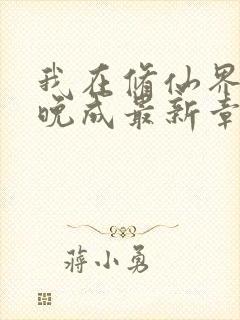 我在修仙界
晚成最新章
蒋小勇